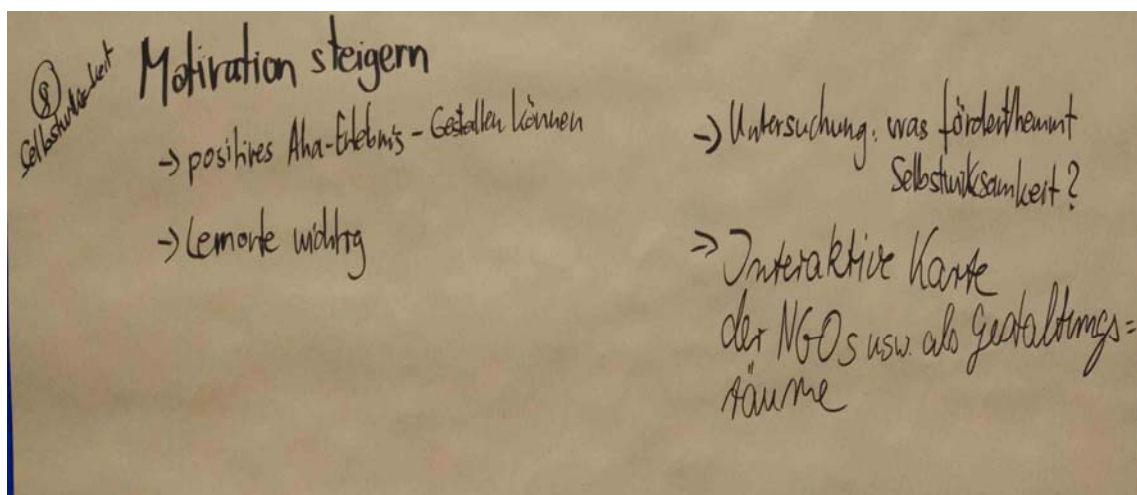 ⑧
Selbstwirksamkeit
Motivation steigern
-> positives Aha-Erlebnis - Gestalten können
-> Lernorte wichtig
-> Untersuchung: was fördert/hemmt
Selbstwirksamkeit?
=> Interaktive Karte
der NGOs usw. als Gestaltungs=
räume